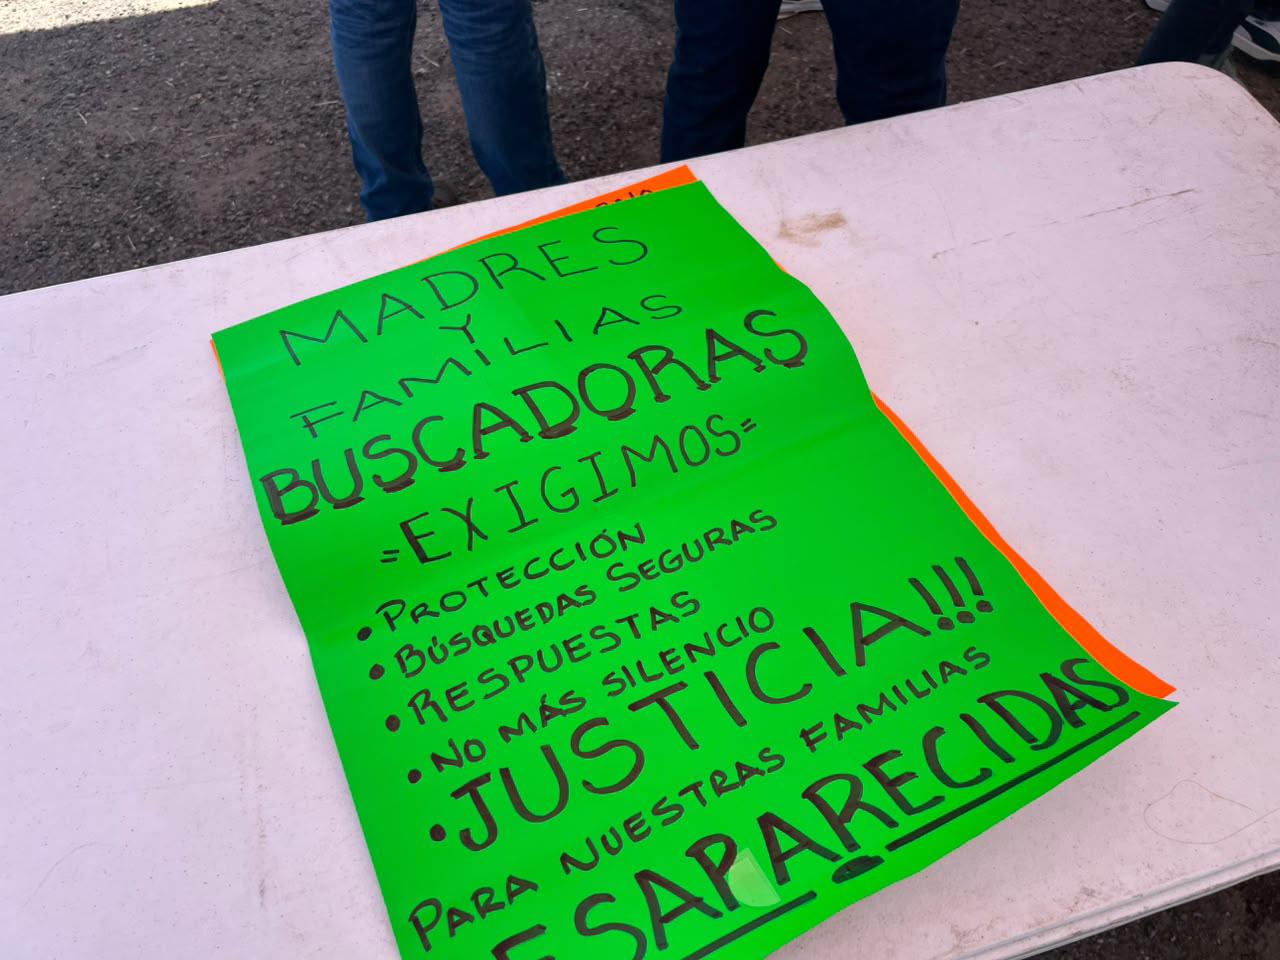 MADRES
Y
FAMILIAS
BUSCADORAS
=EXIGIMOS=
• PROTECCIÓN
• BÚSQUEDAS SEGURAS
• RESPUESTAS
• NO MÁS SILENCIO
• JUSTICIA!!!
PARA NUESTRAS FAMILIAS
ESAPARECIDAS